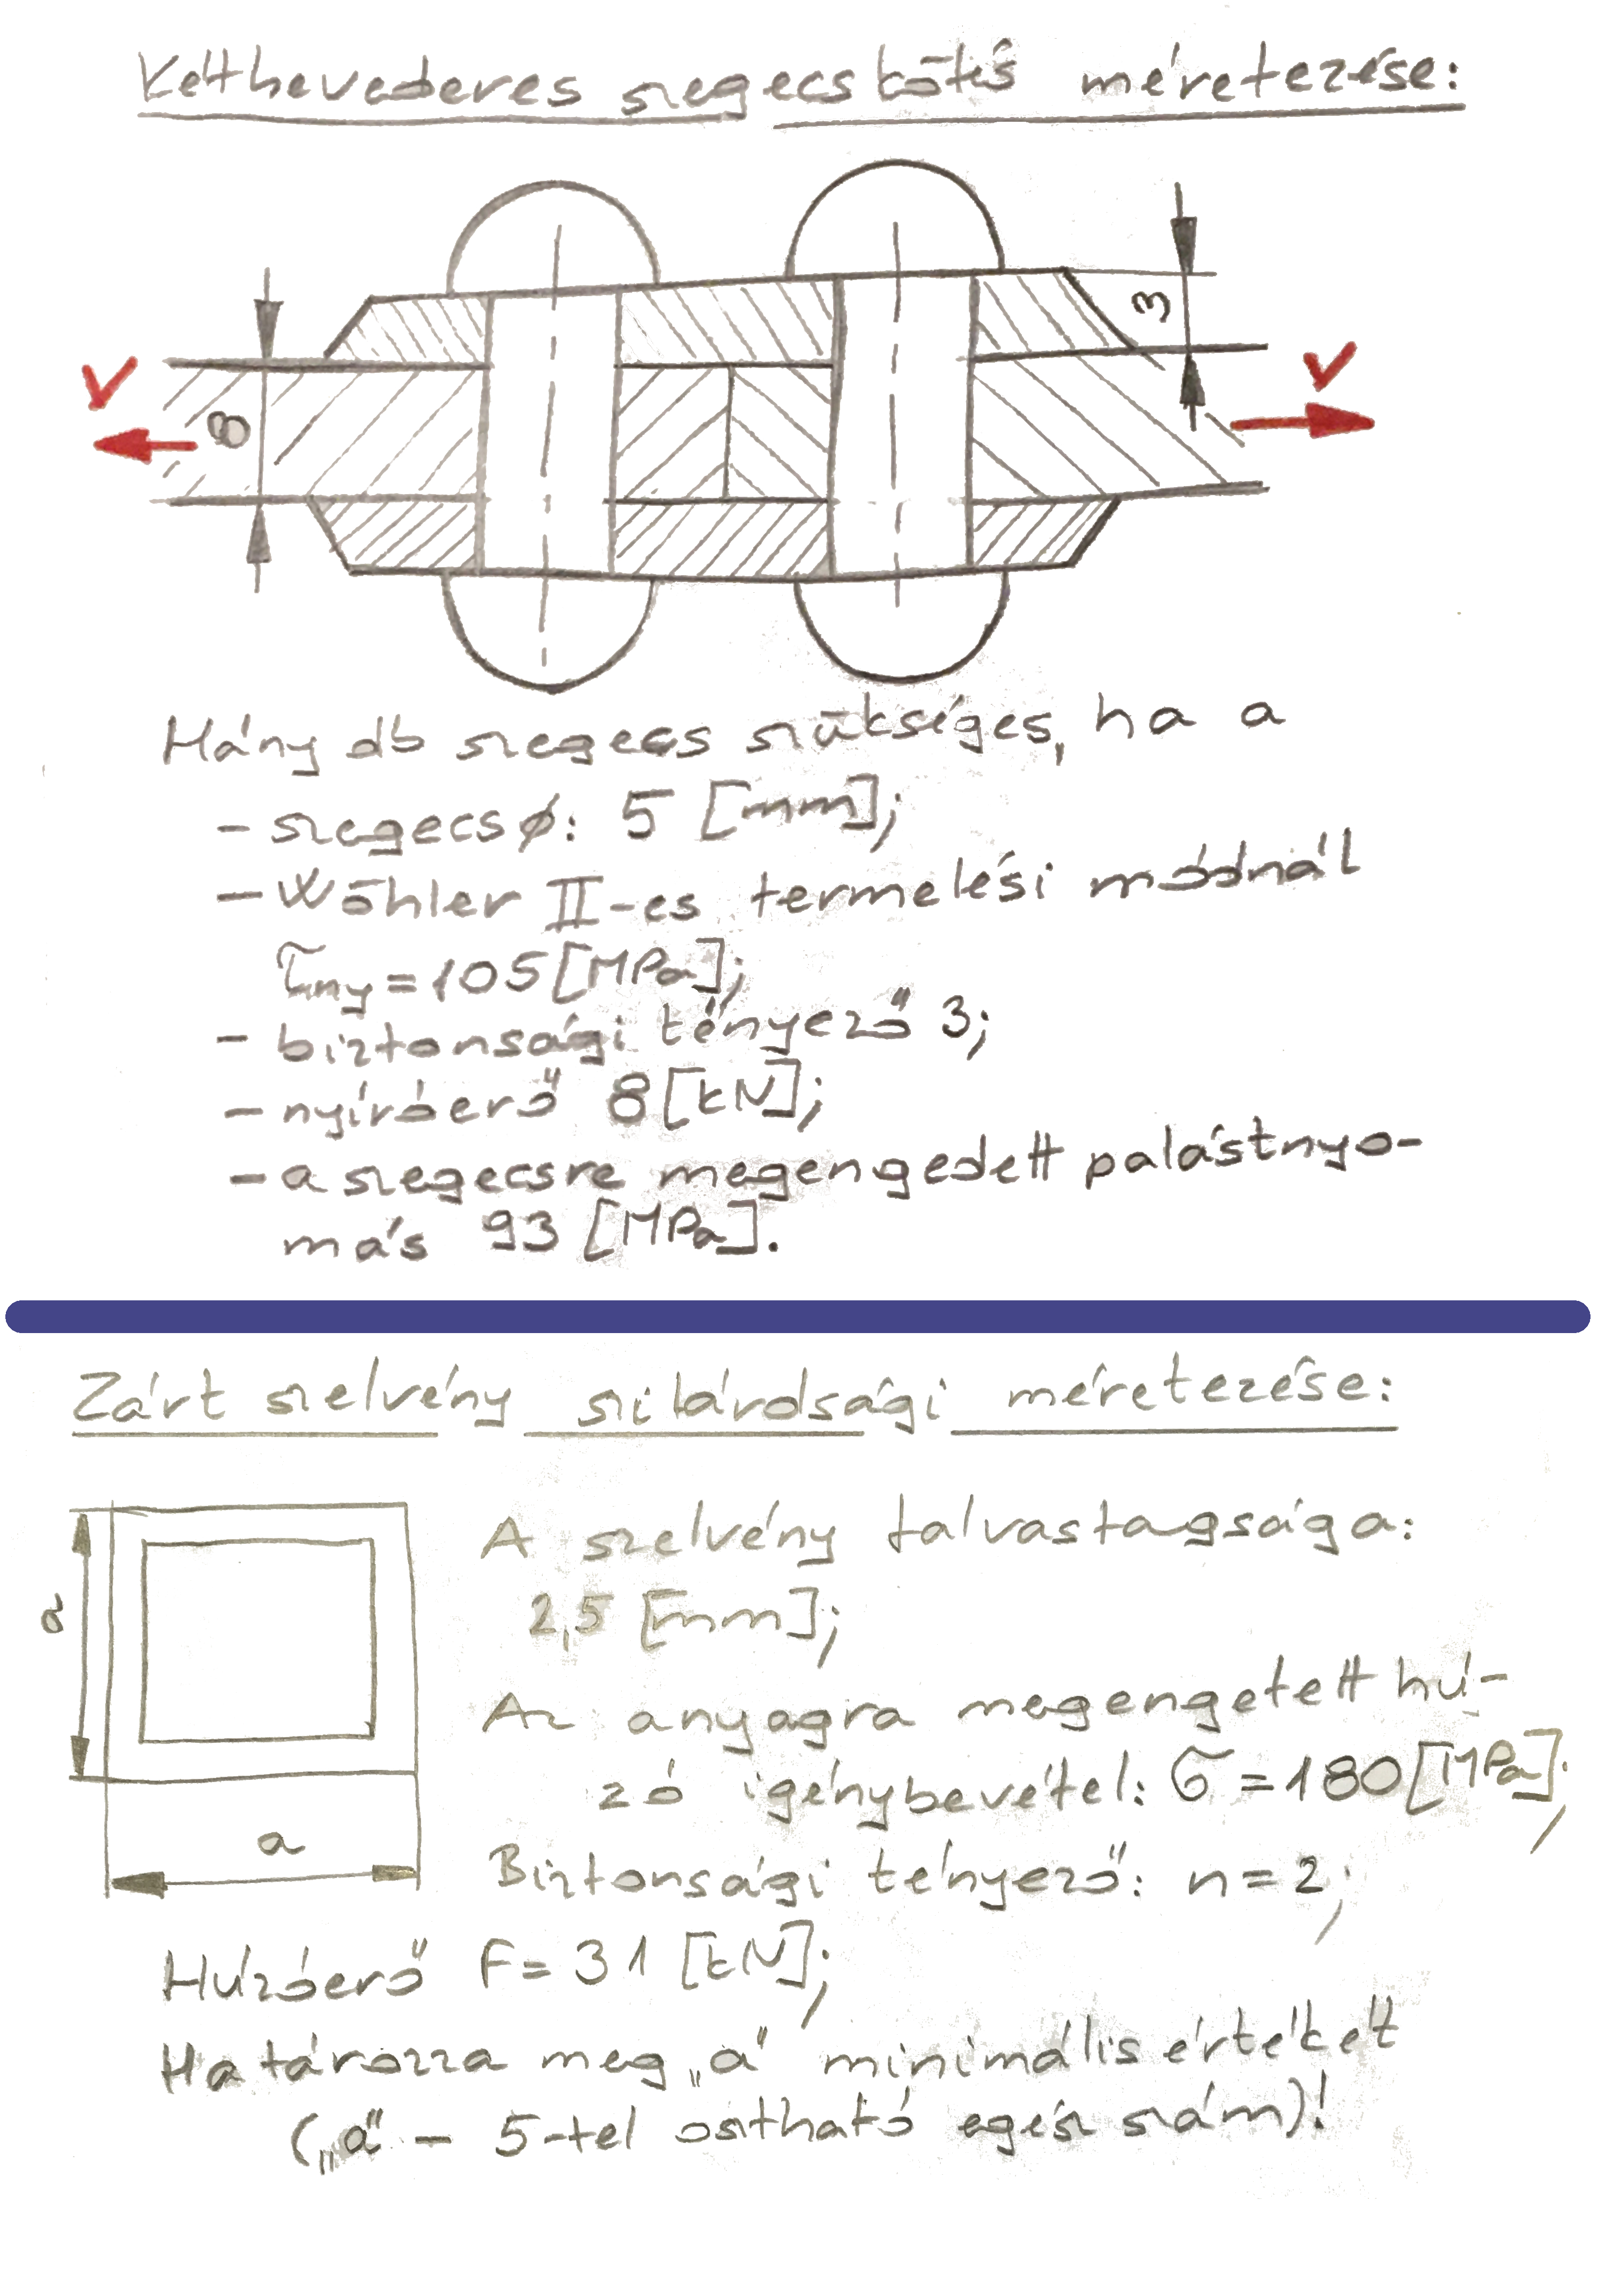 Kétthevederes szegecskötés méretezése:
3
V
V
8
Hány db szegecs szükséges, ha a
- szegecs ø: 5 [mm];
- Wöhler II-es termelési módnál
τny = 105 [MPa];
- biztonsági tényező 3;
- nyíróerő 8 [kN];
- a szegecsre megengedett palástnyo-
más 93 [MPa].
Zárt szelvény szilárdsági méretezése:
A szelvény falvastagsága:
a
2,5 [mm];
Az anyagra megengetett hú-
zó igénybevétel: σ = 180 [MPa];
a
Biztonsági tényező: n = 2;
Húzóerő F = 31 [kN];
Határozza meg „a" minimális értékét
(„a" - 5-tel osztható egész szám)!